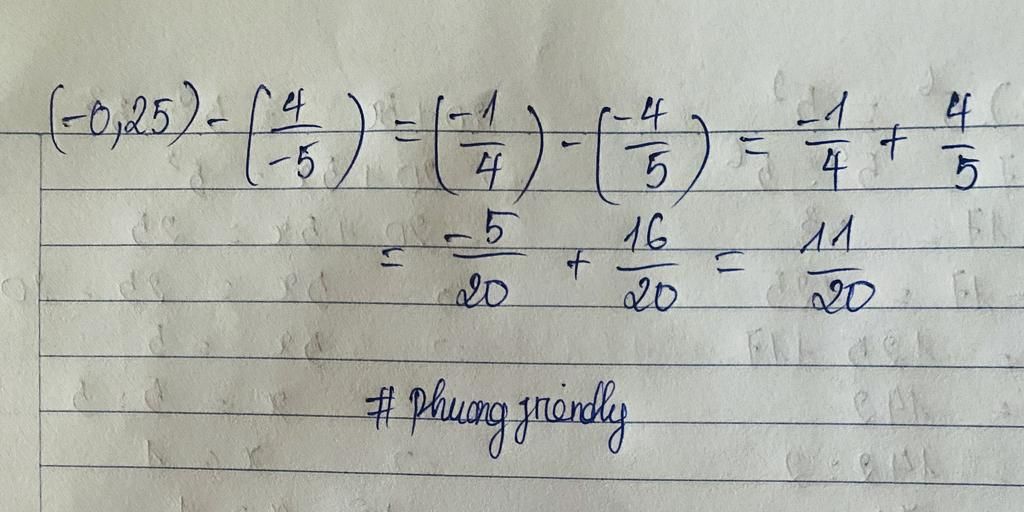 (-0,25) - (4/-5) = (-1/4) - (-4/5) = -1/4 + 4/5
= -5/20 + 16/20 = 11/20
# phuong friendly